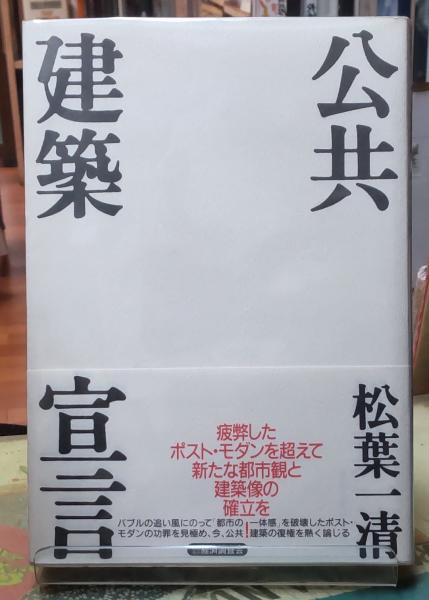 公共
建築
宣言
松葉一清
疲弊した
ポスト・モダンを超えて
新たな都市観と
建築像の
確立を!
バブルの追い風にのって「都市の一体感」を破壊したポスト・
モダンの功罪を見極め、今、公共建築の復権を熱く論じる